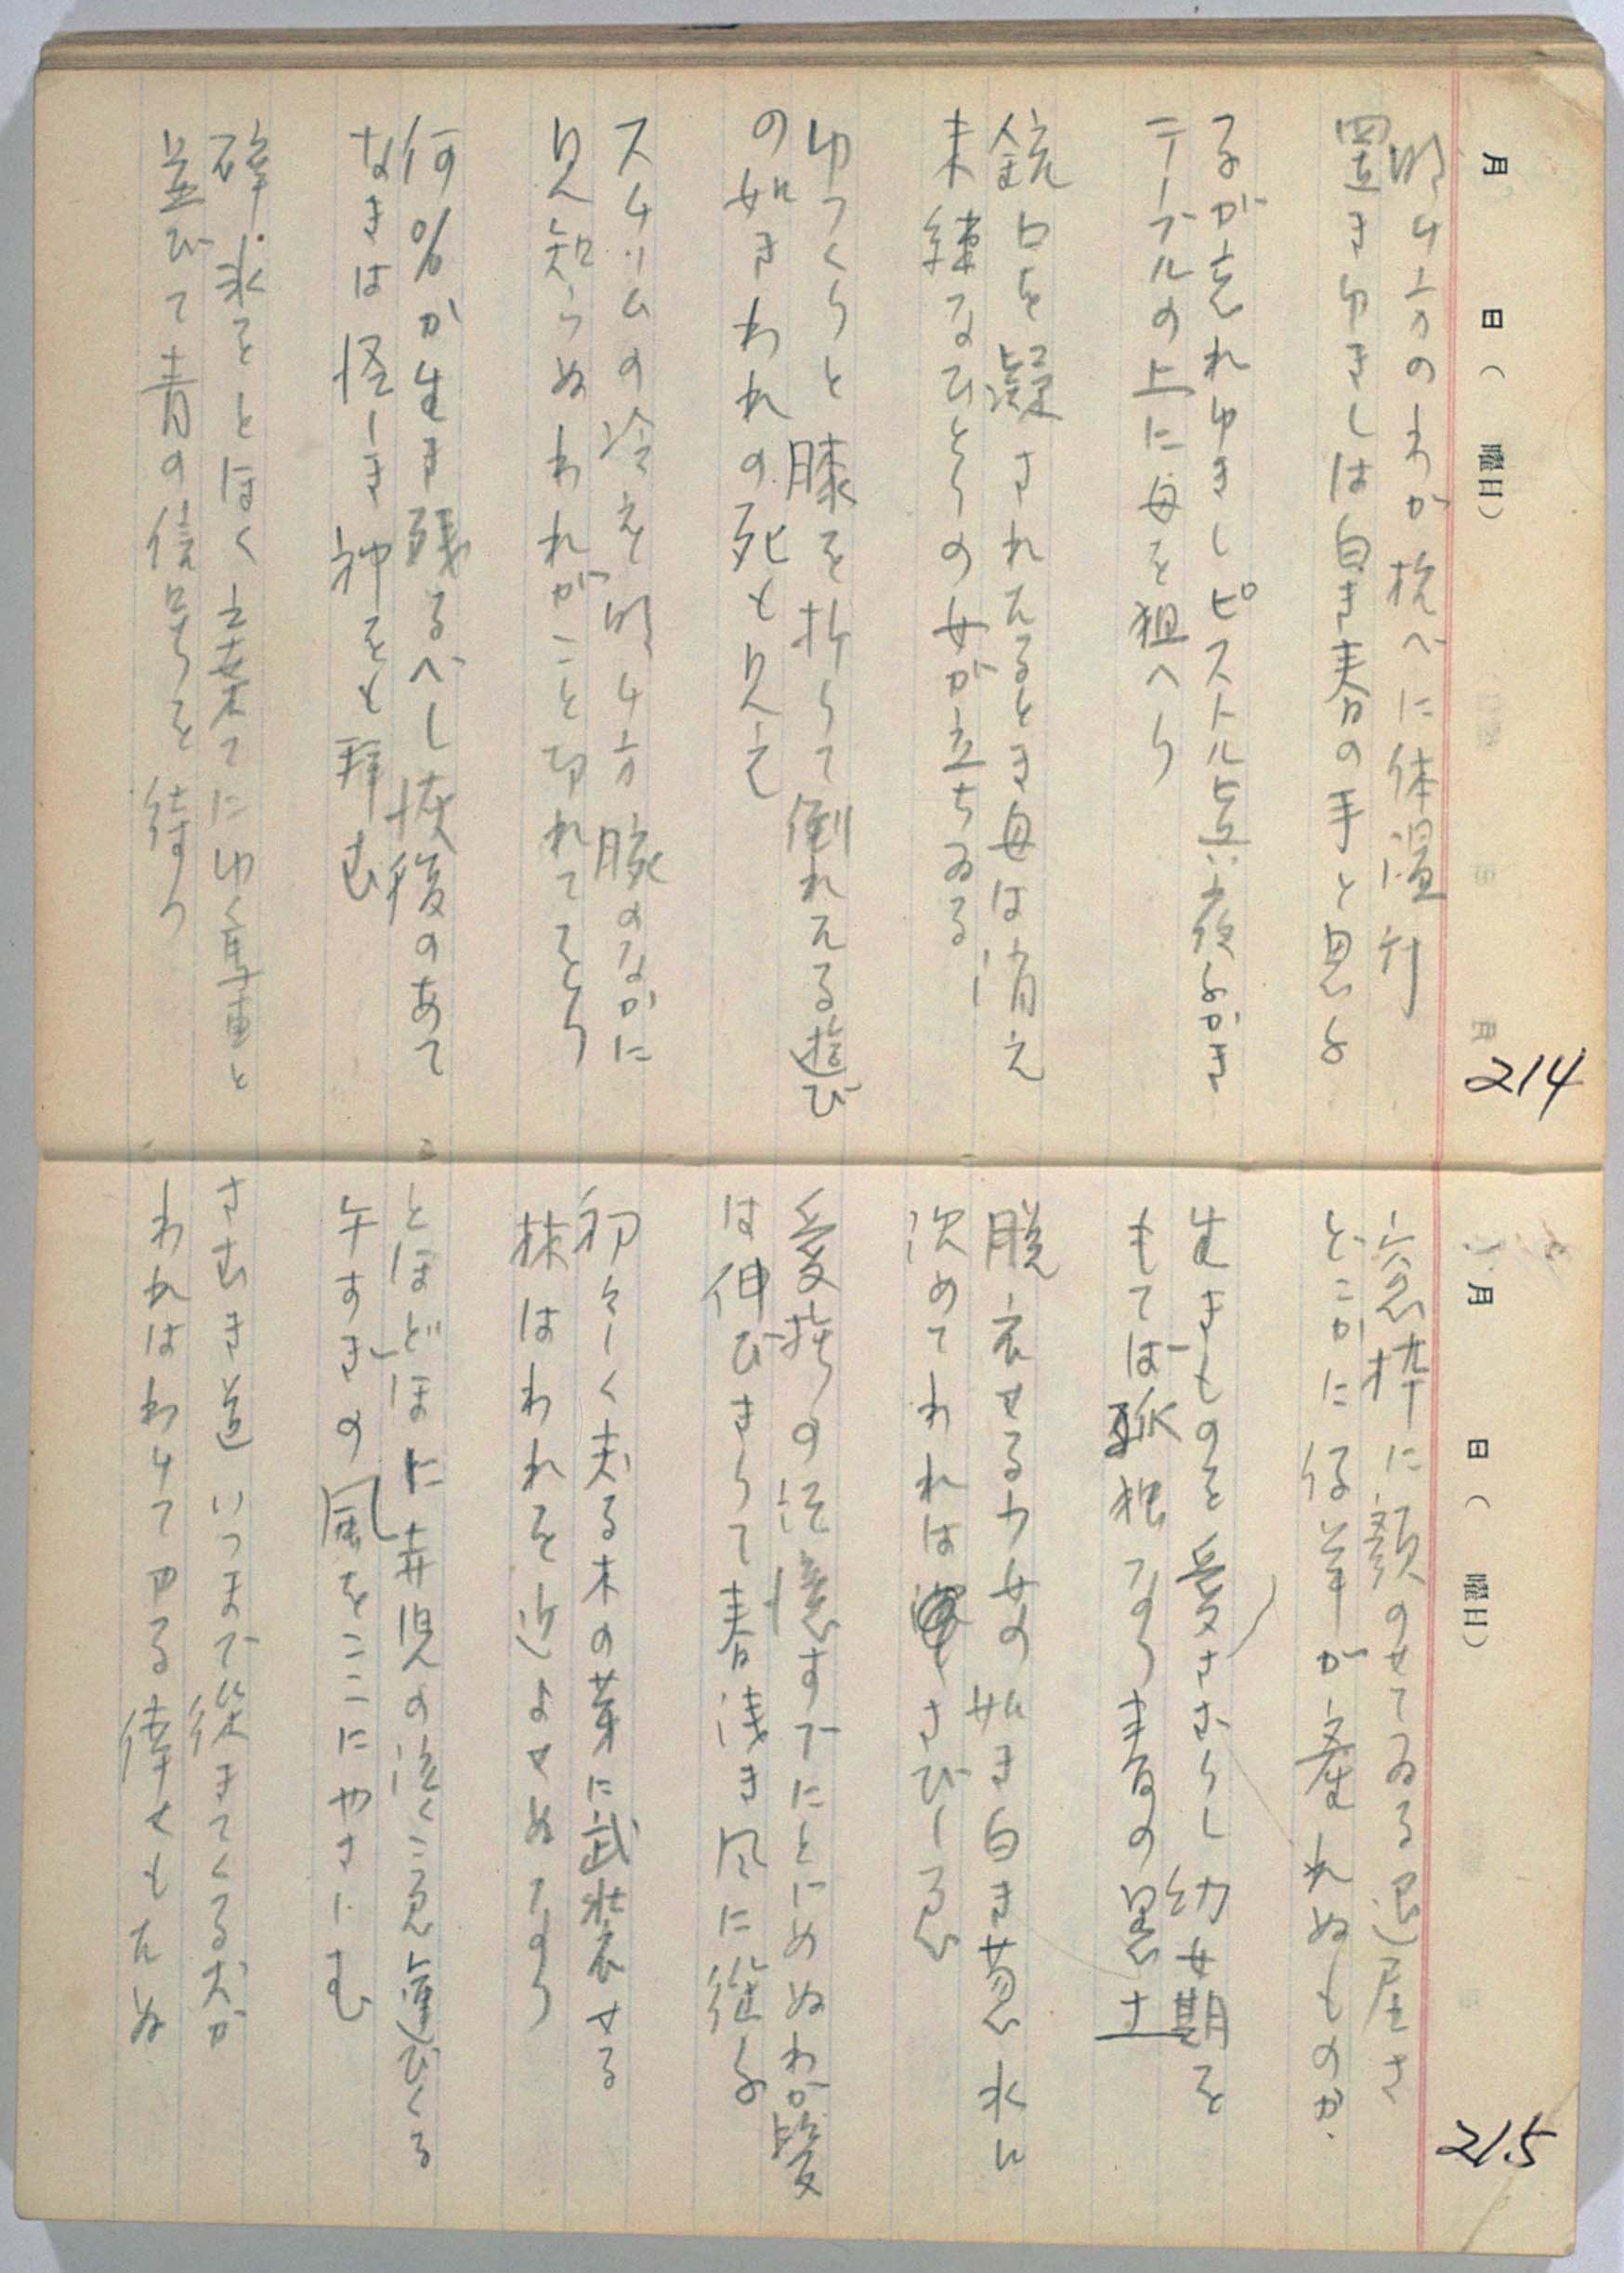 月　日（　曜日）
214
明け方のわが枕べに体温計
置きゆきしは白き春の手と思ふ
子が忘れゆきしピストル点々夜ふかき
テーブルの上に母を狙へり
銃口を凝されたるとき母は消え
未練なひとりの女が立ちゐる
ゆつくりと膝を折りて倒れたる遊び
の如きわれの死も見えて
スチームの冷えた明け方腕のなかに
見知らぬわれがこと切れてをり
何％か生き残るべし灰後のあて
なきは怪しき神をも拝む
砕氷をとほく棄てにゆく車と
並びて青の信号を待つ
月　日（　曜日）
215
窓枠に顔のせてゐる退屈さ
どこかに仔羊が産れぬものか
生きものを愛さざりし幼女期を
もてば孤独なり春の黒土
脱衣せる少女の如き白き葱水に
沈めてわれはさびしゑ
愛撫の記憶すでにとどめぬわが髪
は伸びきりて春浅き風に従ふ
初々しく夫る木の芽に武装せる
林はわれを近よせぬなり
とほどほに幸児の泣くこゑ運びくる
午すぎの風をここにやさしむ
さむき道いつまで従きてくる犬か
われはわけてやる倖せもたぬ